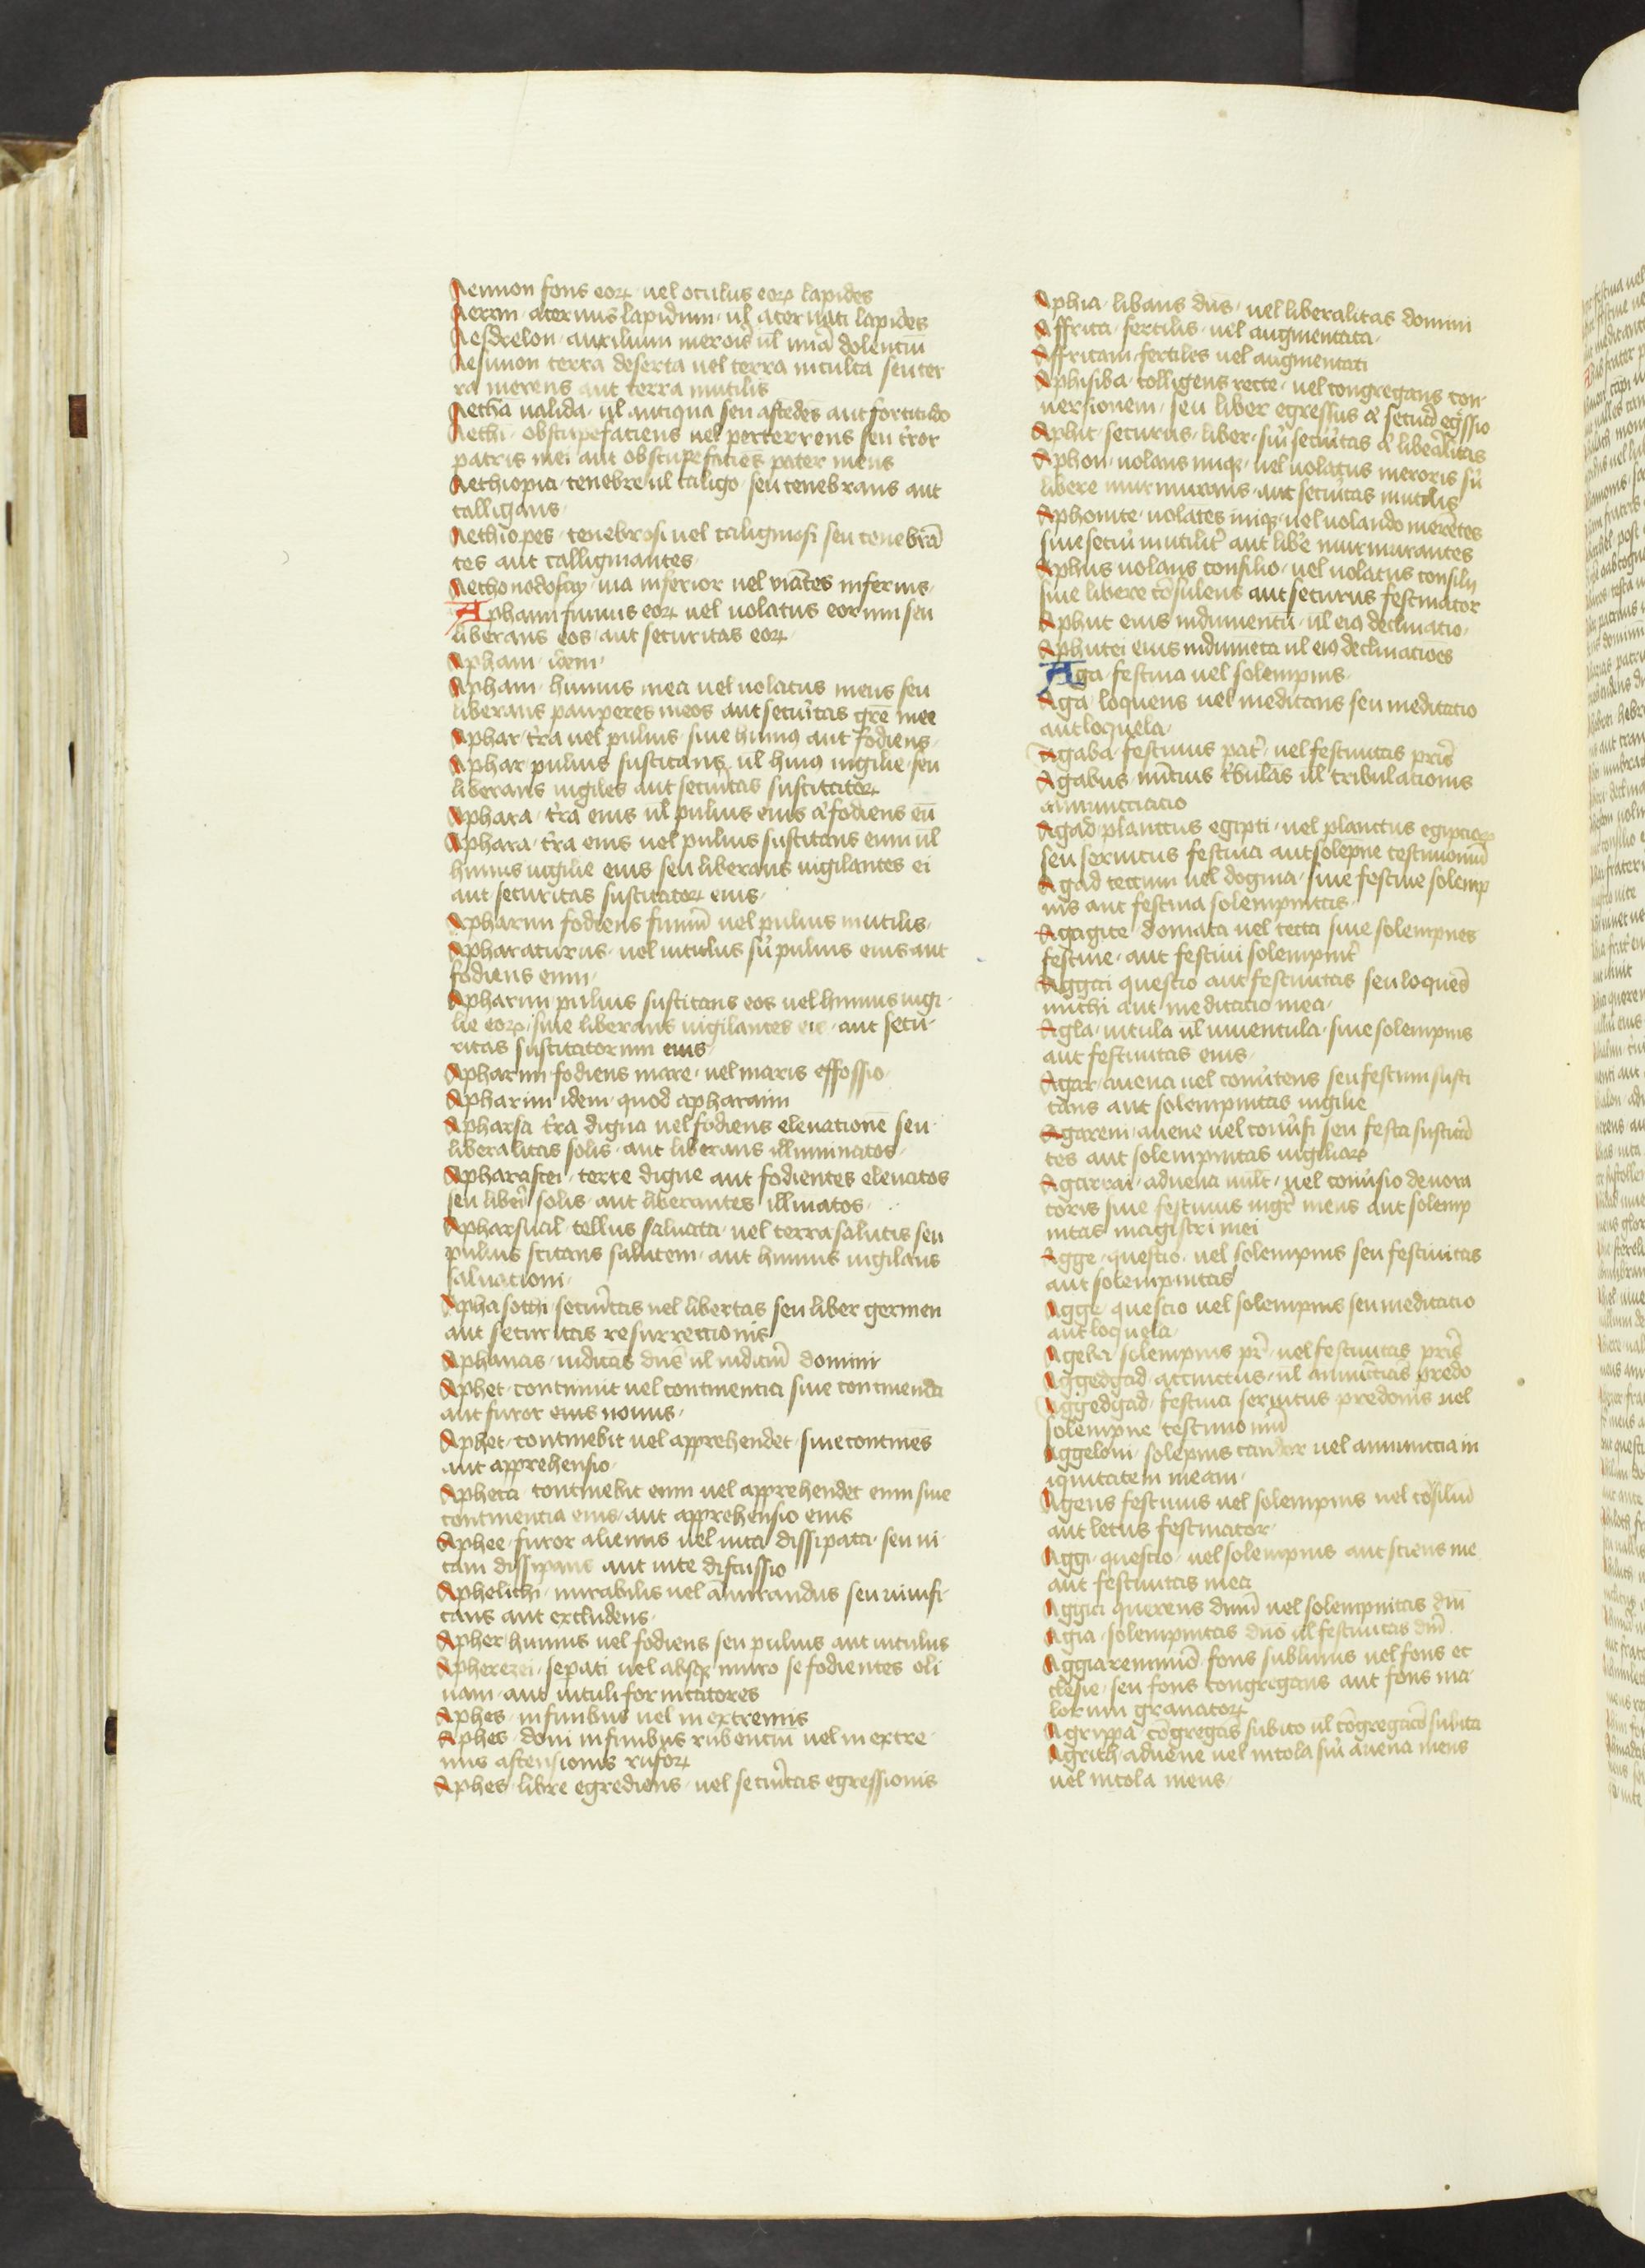 Aennon fons eoꝝ uel oculus eoꝝ lapides
Aerim · aceruus lapidum · ul̄ aceruati lapides
Aesdrelon · auxilium meroris ul̄ dolentiū
Aesimon terra deserta uel terra inculta seu ter
ra merens aut terra inutilis
Aetha ualida · ul̄ antiqua seu ascēdēs aut fortitudo
Aethi · obstupefaciens uel perterrens seu t̄ror
patris mei aut obstupefaciēs pater meus
Aethiopia · tenebre ul̄ caligo · seu tenebrans aut
calligans ·
Aethiopes · tenebrosi uel caliginosi seu tenebrā
tes aut calliginantes ·
uia inferior uel inferius ·
Aphaim fumus eoꝝ uel uolatus eorum seu
liberans eos · aut securitas eoꝝ ·
Apham · idem ·
Apham · humus mea uel uolatus meus seu
liberans pauperes meos aut secūitas mee
Aphar · t̄ra uel puluis siue humꝯ aut fodiens ·
Aphar puluis suscitans ul̄ humꝯ uigilie · seu
liberans uigiles aut securitas suscitatoꝝ
Aphara · t̄ra eius ul̄ puluis eius fodiens eū
Aphara · t̄ra eius uel puluis suscitans eum ul̄
humus uigilie eius seu liberans uigilantes ei
aut securitas suscitatoꝝ eius ·
Apharim fodiens fumū uel puluis inutilis ·
Apharaturus · uel uitulus puluis eius aut
fodiens eum ·
Apharim puluis suscitans eos uel humus uigi
lie eoꝝ · siue liberans uigilantes · aut secu
ritas suscitatorum eius
Apharim fodiens mare · uel maris effossio ·
Apharim idem quod apharaim
Apharsa t̄ra digna uel fodiens eleuationē seu
liberalitas solis · aut liberans illuminatos ·
Apharastei · terre digne aut fodientes eleuatos
seu libēi solis · aut liberantes illīatos ·
tellus saluata · uel terra salutis seu
puluis scitans salutem · aut humus uigilans
saluationi ·
Aphasothi · secūitas uel libertas seu liber germen
aut securitas resurrectionis
iudicās dn̄s ul̄ iudiciū domini
Aphet · continuit uel continentia siue continenda
aut furor eius nouus ·
Aphet · continebit uel apprehendet siue continēs
aut apprehensio ·
Apheta · continebit eum uel apprehendet eum siue
continentia eius · aut apprehensio eius
Aphee · furor alienus uel uita dissipata · seu ui
tam dissipans aut uite discussio
Aphelithi · mirabilis uel ammirandus seu uiuifi
cans aut excludens ·
Apher · humus uel fodiens seu puluis aut uitulus
Apherezei · sepati uel absqꝫ muro se fodientes oli
uam · aut uituli fornicatores
Aphes · in finibus uel in extremis
Aphes · domi in finibus rubentiū uel in extre
mis ascensionis rufoꝝ
Aphes · libre egrediens · uel secūitas egressionis
Aphia · libans dn̄s · uel liberalitas domini
Affrica · fertilis · uel augmentata ·
Affricani · fertiles uel augmentati
Aphisiba · colligens recte · uel congregans con
uersionem · seu liber egressus secūd egssio
Aphit · securus · liber · siū secūitas libēalitas
Aphon · uolans iniqꝫ · uel uolatus meroris sū
libere murmurans · aut secūitas inutilis
Aphonite · uolātes iniqꝫ · uel uolando merētes
siue secūi inutilit̄ aut libē murmurantes
Aphus uolans consilio · uel uolatus consilii
siue libere cōsulens aut securus festinator
Aphut eius indumentū · ul̄ eiꝯ declinatio ·
Aphutei eius indumēta ul̄ eiꝯ declinatioēs
Aga · festiua uel solempnis ·
Aga · loquens uel meditans seu meditatio
aut loquela ·
Agaba · festiuus pat̄ · uel festiuitas p̄ris
Agabus nūcius t̄bulās ul̄ tribulationis
annunciatio
Agad · planctus egipti · uel planctus egiptioꝝ
seu seruitus festiua aut solēpne testimoniū
Agad tectum uel dogma · siue festiue solemp
nis aut festiua solempnitas ·
Agagite · domata uel tecta siue solempnes
festiue · aut festiui solempnit̄
Aggai questio aut festiuitas seu loquēs
michi aut meditatio mea ·
Agla · uitula ul̄ iuuencula · siue solempnis
aut festiuitas eius ·
Agar · auena uel conūtens seu festum susci
tans aut solempnitas uigilie
Agareni · auene uel conūsi seu festa suscitā
tes aut solempnitas uigiliaꝝ
Agarrai · aduena uel conūsio deuora
toris siue festiuus mgr̄ meus aut solemp
nitas magistri mei
Agge · questio · uel solempnis seu festiuitas
aut solempnitas
Agge · questio uel solempnis seu meditatio
aut loquela ·
Ageba solempnis pr̄ · uel festiuitas p̄ris
Aggedgad · accinctus · ul̄ annūcians predo
Aggedgad · festiua seruitus predonis uel
solempne testimoniū
Aggeloni · solēpnis candor uel annunciam
iquitatem meam ·
Agens festiuus uel solempnis uel cōsiliū
aut letus festinator ·
Aggi · questio · uel solempnis aut sciens me
aut festiuitas mea
Aggia querens dnm̄ uel solempnitas dn̄i
Agia · solempnitas dn̄o ul̄ festiuitas dn̄i ·
fons sublimis uel fons ec
clesie · seu fons congregans aut fons ma
lorum granatoꝝ
Agrippa · cōgregās subito ul̄ cōgregatō subita
Agrith · aduene uel incola siū auena meus
uel incola meus ·